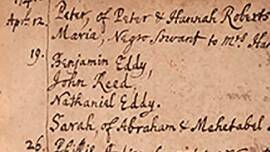 Apr. 12. Peter, of Peter & Hannah Roberts
Maria, Negro Servant to Mrs Ha
19. Benjamin Eddy,
John Reed,
Nathaniel Eddy.
Sarah, of Abraham & Mehetabel
26.